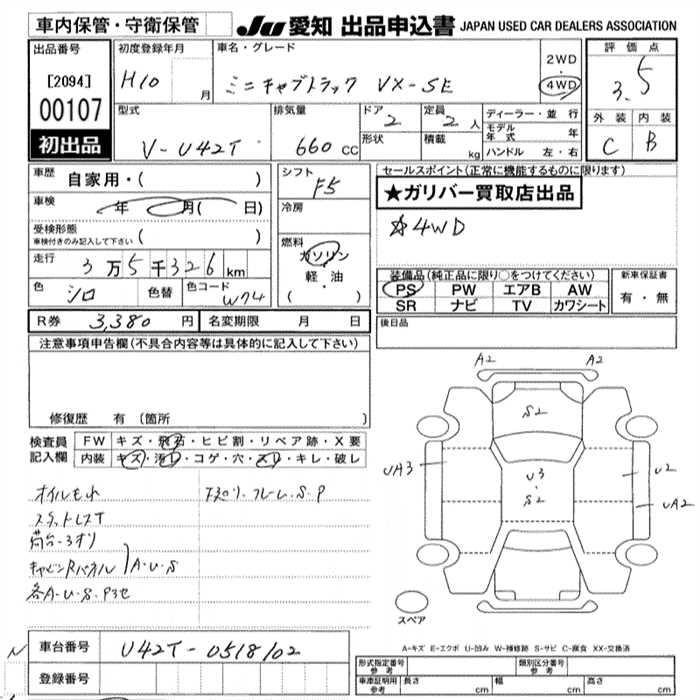 車内保管・守衛保管
JU 愛知 出品申込書 JAPAN USED CAR DEALERS ASSOCIATION
出品番号
[2094]
00107
初出品
初度登録年月
H10 月
車名・グレード
ミニキャブトラック VX-SE
2WD
・
4WD
評価点
3.5
外装 内装
C B
型式
V-U42T
排気量
660 cc
ドア
2
形状
定員
2 人
積載
kg
ディーラー・並行
モデル年式 年
ハンドル 左・右
車歴
自家用・( )
車検
年 月( 日)
受検形態
車検付きのみ記入して下さい ( )
走行
3万5千326 km
色
シロ
色替
色コード
W74
シフト
F5
冷房
燃料
ガソリン
軽・油
( ・ )
セールスポイント(正常に機能するものに限ります)
★ガリバー買取店出品
☆4WD
装備品(純正品に限り○をつけてください)
PS PW エアB AW
SR ナビ TV カワシート
新車保証書
有・無
後日品
R券 3,380 円 名変期限 月 日
注意事項申告欄(不具合内容等は具体的に記入して下さい)
修復歴 有(箇所 )
検査員
記入欄
FW キズ・飛石・ヒビ割・リペア跡・X要
内装 キズ・汚れ・コゲ・穴・スレ・キレ・破レ
オイルもれ
下廻り・フレーム・S・P
スタットレスT
荷台-3オリ
キャビンRパネル A・U・S
各A・U・S・P3セ
A2 A2
S2
UA3
U3
・
S2
U2
UA2
スペア
A-キズ E-エクボ U-凹み W-補修跡 S-サビ C-腐食 XX-交換済
N
車台番号 U42T-0518102
登録番号
形式指定番号 参考
類別区分番号 参考
車庫証明用 参考
長さ cm
幅 cm
高さ cm